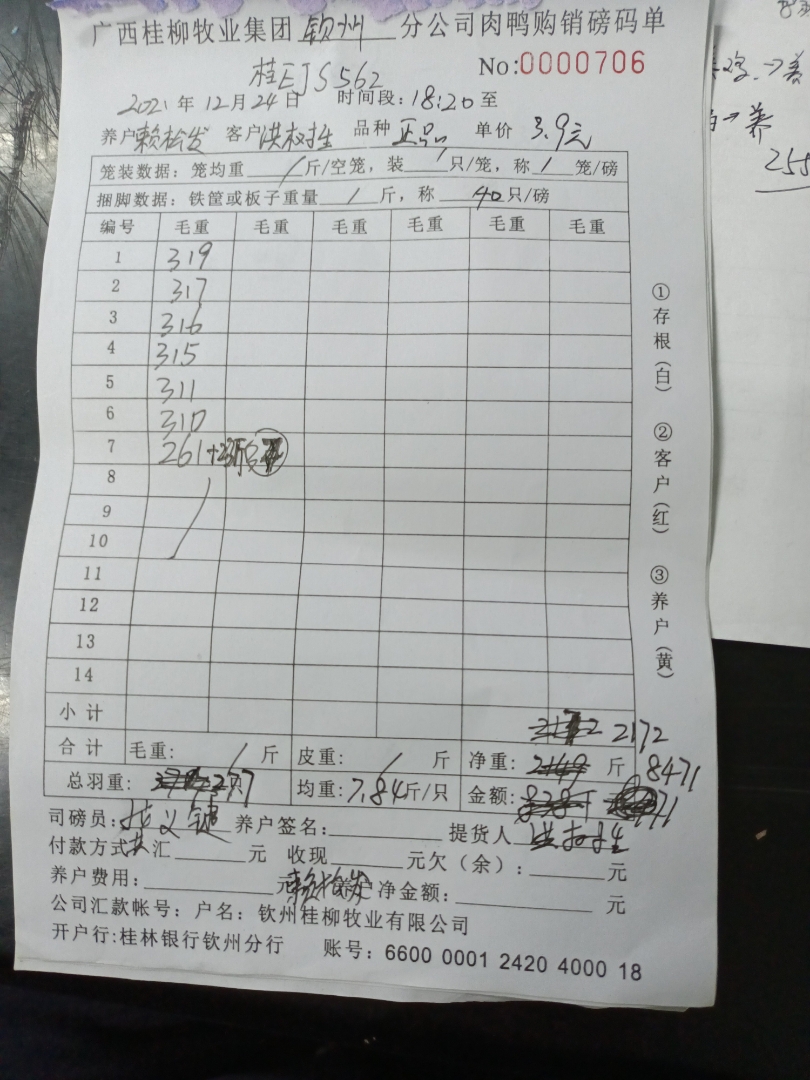 广西桂柳牧业集团 钦州 分公司肉鸭购销磅码单
桂EJS562 No:0000706
2021年12月24日 时间段:18:20至
养户 赖松发 客户 洪树生 品种 正品 单价 3.9元
笼装数据:笼均重 / 斤/空笼,装 / 只/笼,称 / 笼/磅
捆脚数据:铁筐或板子重量 / 斤,称 40只/磅
编号 毛重 毛重 毛重 毛重 毛重 毛重
1 319
2 317
3 316
4 315
5 311
6 310
7 261
8
9
10
11
12
13
14
小计
2172
合计 毛重: / 斤 皮重: / 斤 净重: 2149 斤 8471
总羽重: 277只 均重:7.84斤/只 金额:
司磅员: 养户签名: 提货人 洪树生
付款方式 汇 元 收现 元欠(余): 元
养户费用: 元 赖松发 养户净金额: 元
公司汇款帐号:户名:钦州桂柳牧业有限公司
开户行:桂林银行钦州分行 账号:6600 0001 2420 4000 18
①存根(白)
②客户(红)
③养户(黄)
养
255